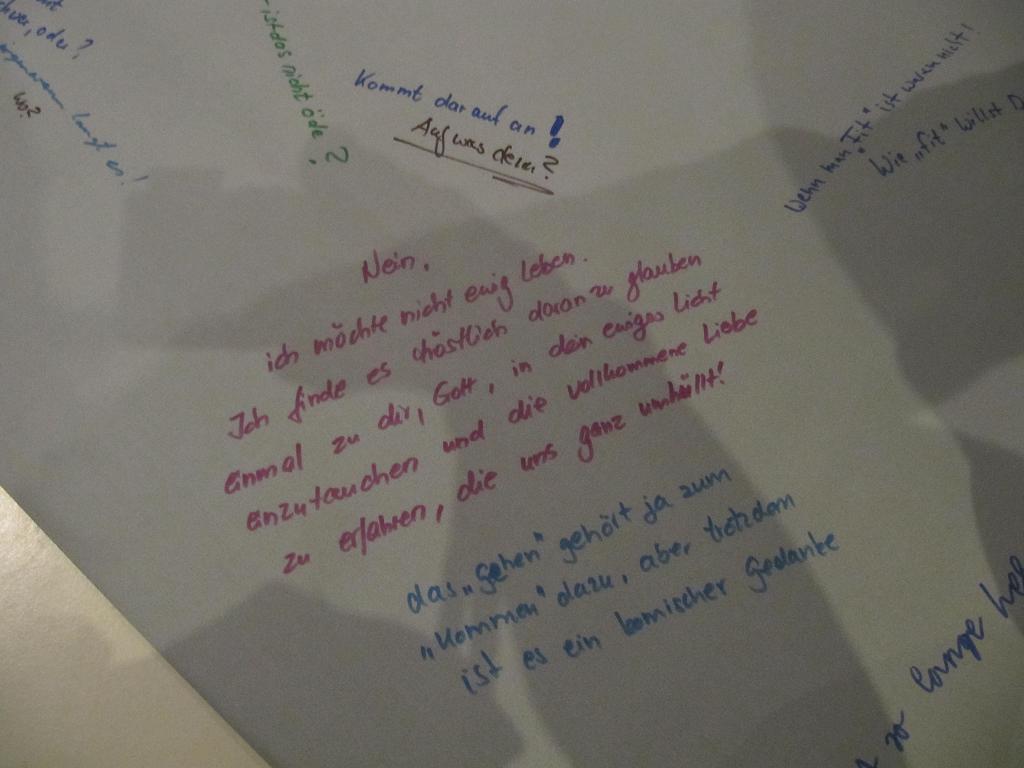 oder?
wo?
ist das nicht öde?
Kommt darauf an!
Auf was denn?
Wenn man "Fit" ist warum nicht!
Wie "fit" willst D
Nein.
ich möchte nicht ewig leben.
Ich finde es tröstlich daran zu glauben
einmal zu dir, Gott, in dein ewiges Licht
einzutauchen und die vollkommene Liebe
zu erfahren, die uns ganz umhüllt!
das "gehen" gehört ja zum
"kommen" dazu, aber trotzdem
ist es ein komischer Gedanke
so lange